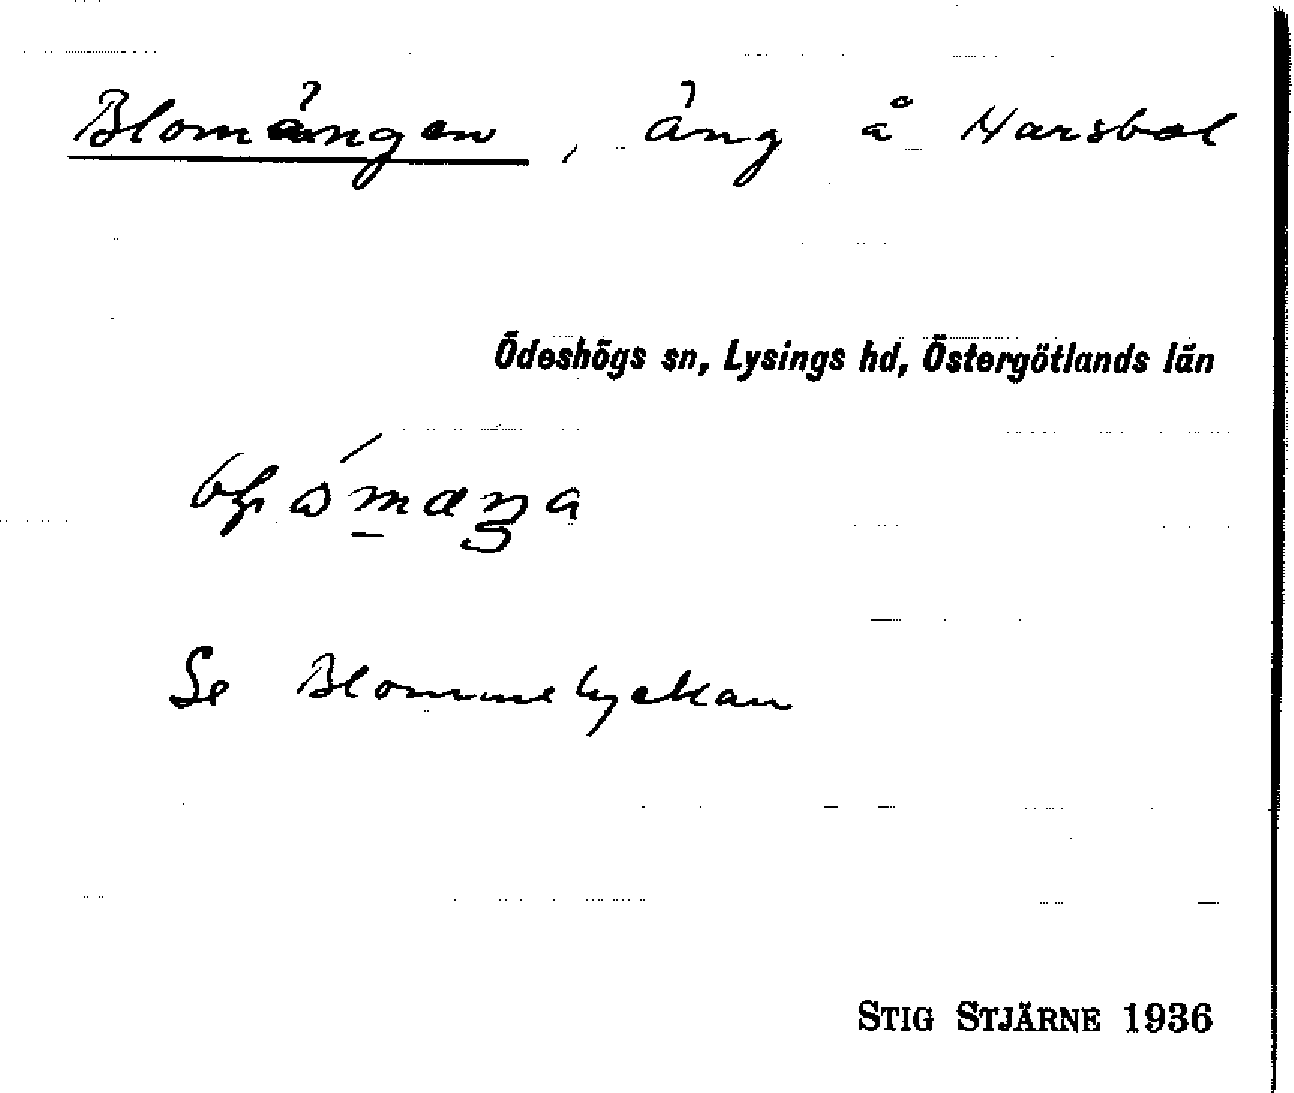 Blomängen, äng å Harsbol
Ödeshögs sn, Lysings hd, Östergötlands län
Se Blommelyckan
STIG STJÄRNE 1936